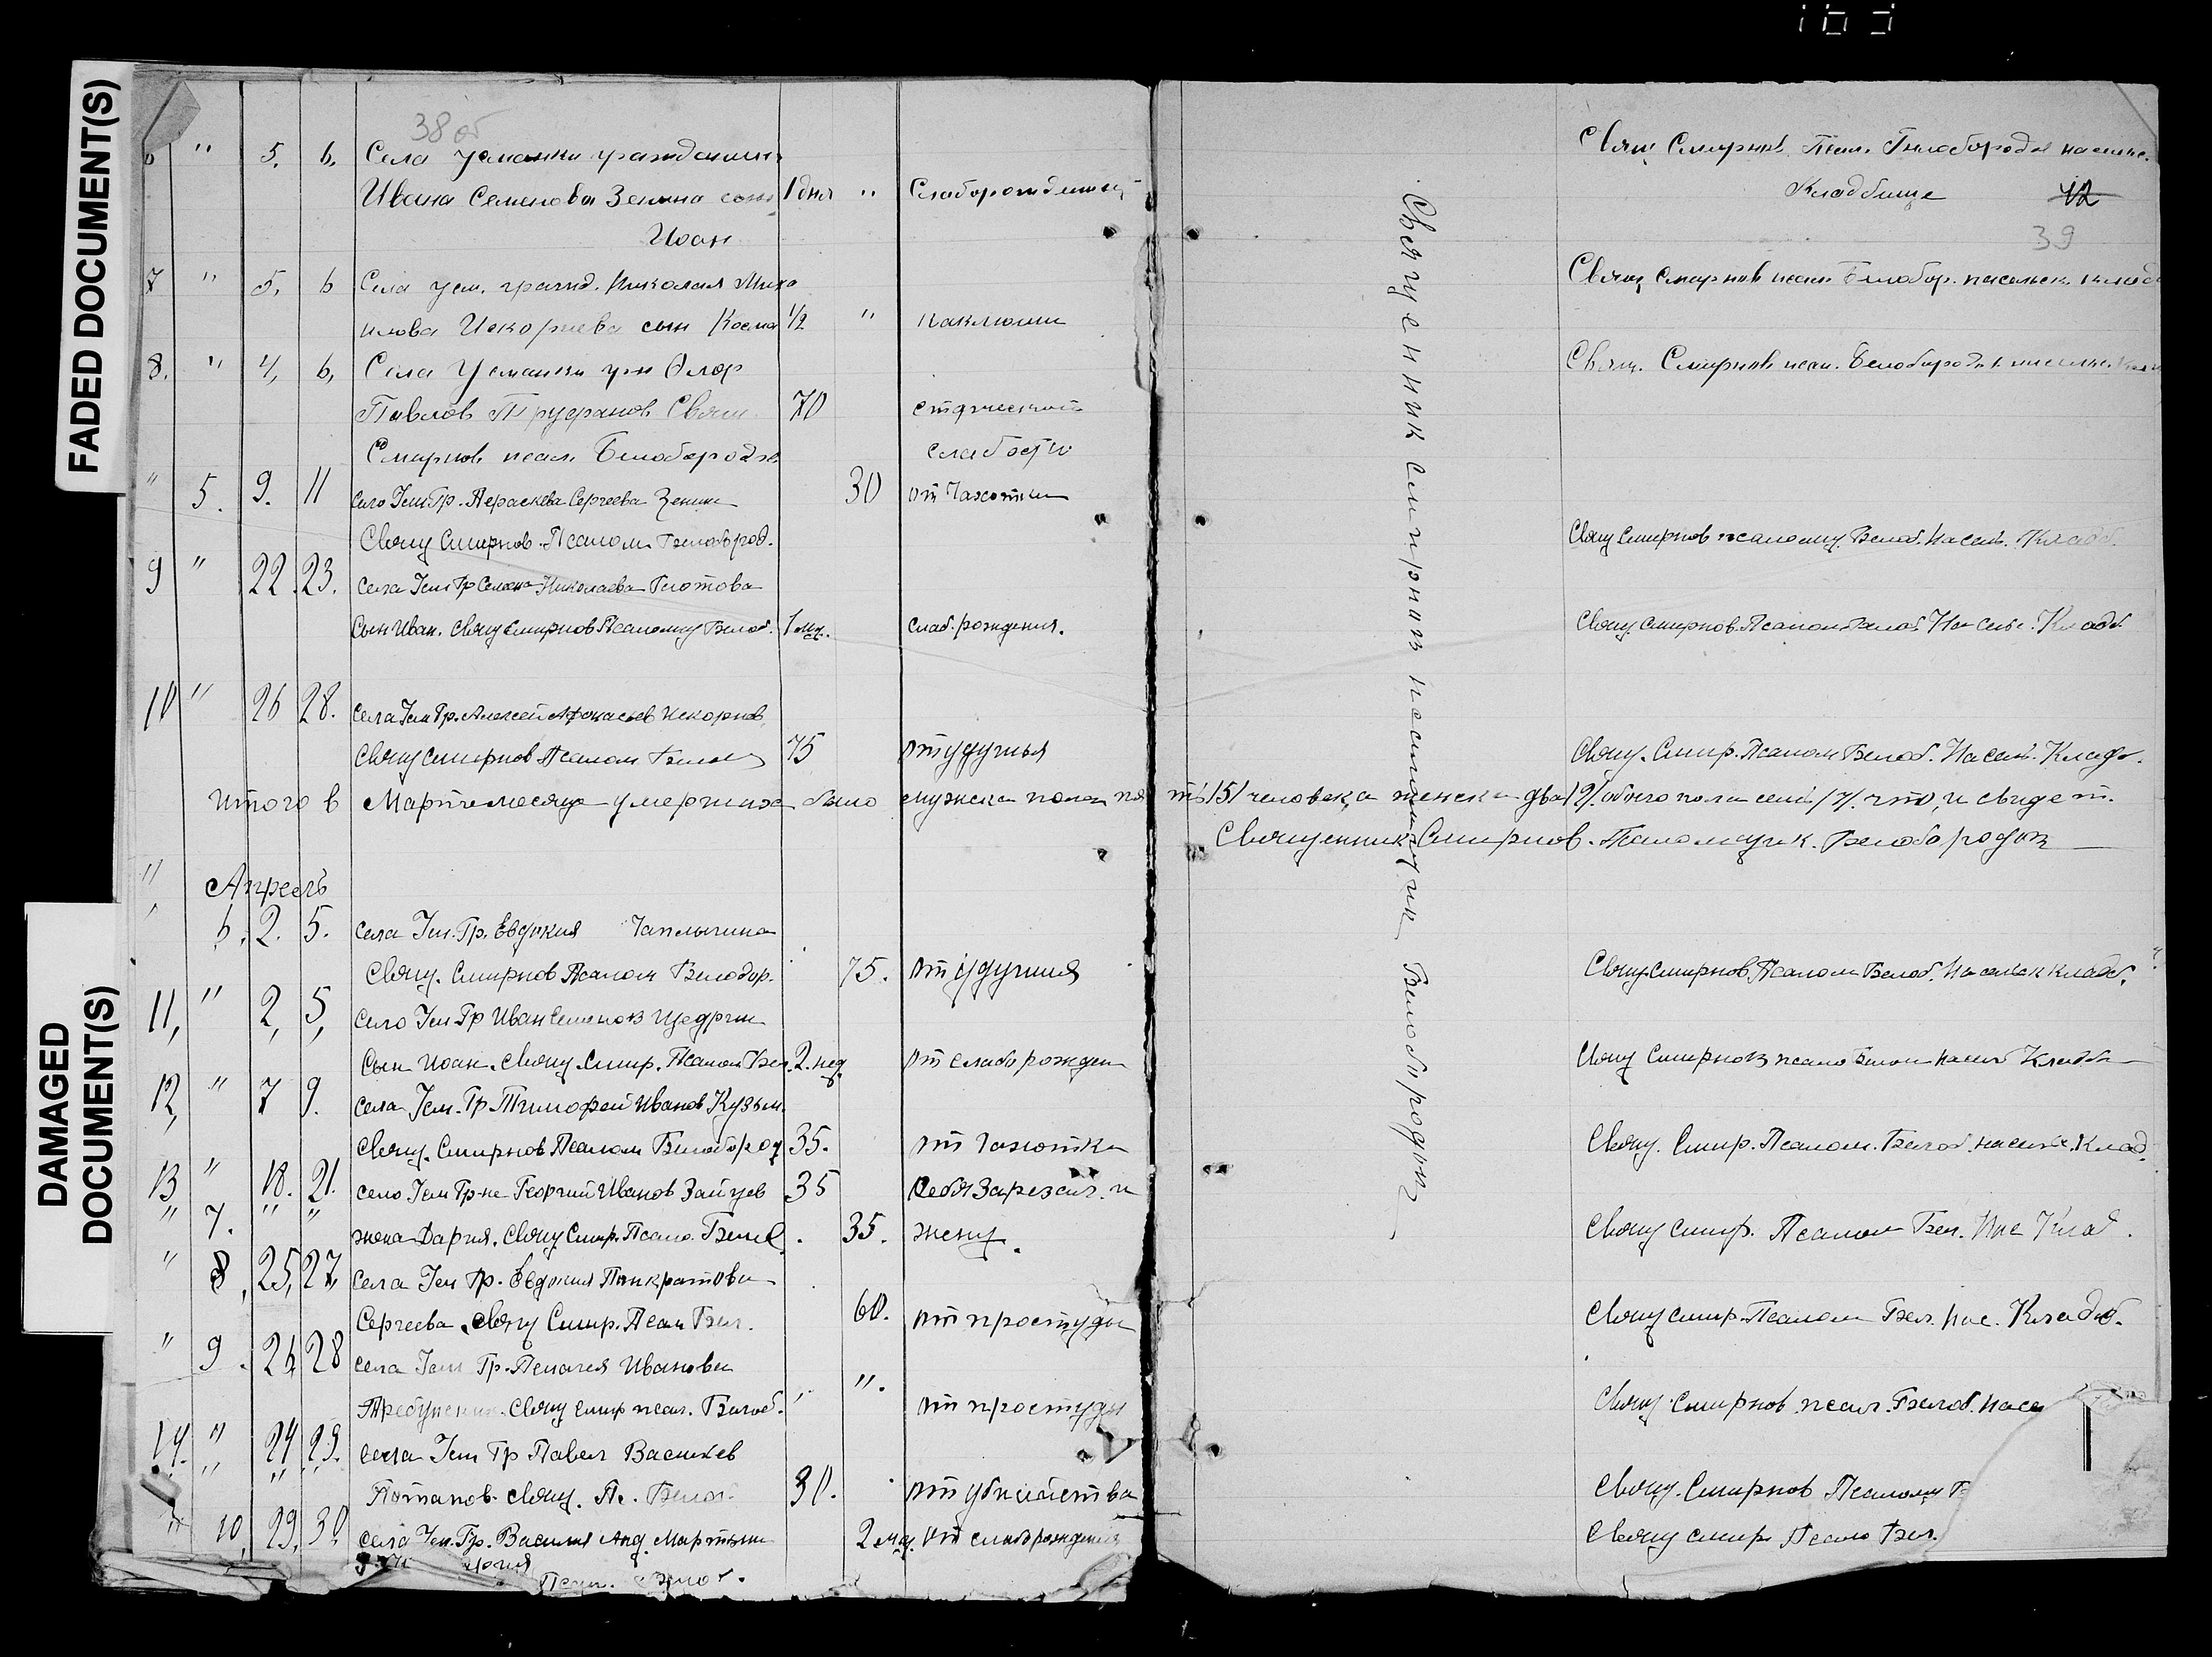 FADED DOCUMENT(S)
DAMAGED DOCUMENT(S)
38 об
6 " 5. 6, Села Усманки гражданина Свящ. Смирнов. Псал. Белобородов на сельс.
Ивана Семенова Зенина сын 1 дня " Слаборожденный Кладбище 42
Иоан 39
7 " 5, 6 Села Усм. гражд. Николая Миха Свящ Смирнов псал. Белобор. на сельск. кладб
илова Искорнева сын Косма 1/2 " коклюши
8. " 4, 6, Села Усманки гр-н Флор Свящ. Смирнов псал. Белобородов
Павлов Труфанов Свящ 70 старческой
Смирнов псал. Белобородов слабости
" 5. 9. 11 село Усм Гр. Параскева Сергеева Зенина 30 от Чахотки
Свящ Смирнов. Псалом. Белобород. Свящ Смирнов псаломщ. Белоб. На сель. Кладб.
9 " 22. 23. села Усм Гр Семена Николаева Глотова
Сын Иван. Свящ Смирнов Псаломщ Белоб. 1 мц. слаб. рождения. Свящ. Смирнов. Псалом Белоб На сель. Кладб
10 " 26 28. села Усм Гр. Алексей Афонасьев Искорнов
Свящ Смирнов Псалом Белоб 75 от удушья Свящ. Смир. Псалом Белоб. На сель. Кладб.
Итого в Марте месяце умерших было мужска пола пять /5/ человек, а женска два /2/ обоего пола семь /7/. что, и свидет.
Священник Смирнов. Псаломщик. Белобородов
" Апрель
" 6. 2. 5. села Усм. Гр. Евдокия Чаплыгина
Свящ. Смирнов Псалом Белобор. 75. от удушия Свящ. Смирнов, Псалом Белоб. На сельск кладб.
11, " 2, 5, село Усм Гр Иван Семенов Щедрин
Сын Иоан. Свящ. Смир. Псалом Бел. 2. нед. от слабо рожден Свящ Смирнов псало Белоб на сель Кладб
12, " 7 9. села Усм. Гр. Тимофей Иванов Кузьм.
Свящ. Смирнов Псалом Белобород 35. от Чахотки Свящ. Смир. Псалом. Белоб. на сель. Клад.
13 " 18. 21. село Усм Гр-не Георгий Иванов Зайцев 35 Себя Зарезал. и
" 7. " " жена Дария. Свящ. Смир. Псало. Белоб. 35. жену. Свящ Смир. Псалом Бел. На с Клад.
" 8, 25, 27, села Усм Гр. Евдокия Панкратова
Сергеева, Свящ Смир. Псал Бел. 60. от простуды Свящ Смир. Псалом Бел. на с. Кладб.
" 9. 26, 28 села Усм Гр. Пелагея Иванова
Свящ Смир псал. Белоб. " ". от простуды Свящ Смирнов псал. Белоб. на се
14. " 24 29. села Усм Гр Павел Васильев
" " " Потапов. Свящ. Пс. Белоб. 30. от убийства Свящ. Смирнов Псаломщ Б
" 10, 29, 30 села Усм. Гр. Василия Анд. Мартын 2 мц. от слабо рождения Свящ Смир. Псало Бел.
Псал. Белоб.
Священник Смирнов псаломщик Белобородов